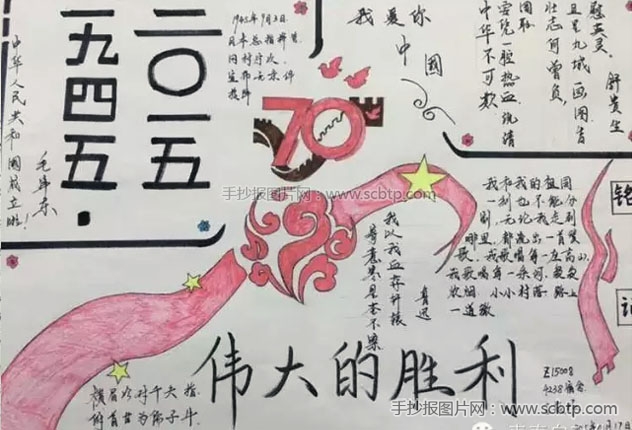 中华人民共和国成立啦!
毛泽东
一九四五·
二〇一五
1945年9月2日
日本总指挥官
冈村宁次
宣布无条件
投降
70
我爱你
中国
慰英灵 舒贵生
壮志何曾负,
国耻
一腔热血洗清
中华不可欺
手抄报图片网:www.scbtp.com
我以我血荐轩辕
鲁迅
我和我的祖国
一刻也不能分
割,无论我走到
哪里,都流出一首赞
歌。我歌唱每一座高山,
我歌唱每一条河。袅袅
炊烟,小小村落,路上
一道辙
铭
记
伟大的胜利
横眉冷对千夫指
俯首甘为孺子牛
Z15008
4238宿舍
手抄报图片网:www.scbtp.com